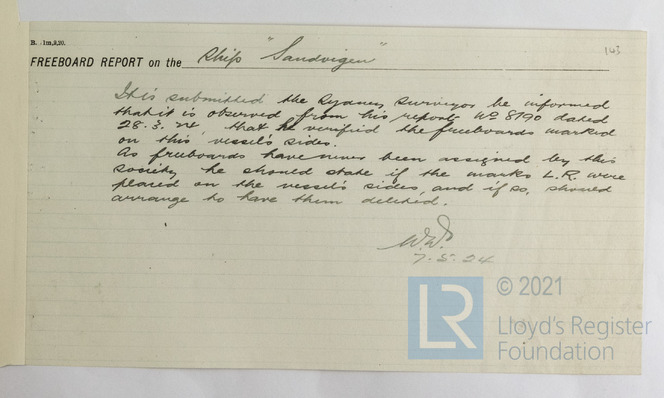 B. 1m,3,20.
163
FREEBOARD REPORT on the Ship "Sandvigen"
It is submitted the Sydney Surveyor be informed
that it is observed from his report No 8190 dated
28.3.24, that he verified the freeboards marked
on this vessel's sides.
As freeboards have never been assigned by this
society he should state if the marks L.R. were
placed on the vessel's sides, and if so, should
arrange to have them deleted.
W.W.
7.5.24
© 2021
LR
Lloyd's Register
Foundation